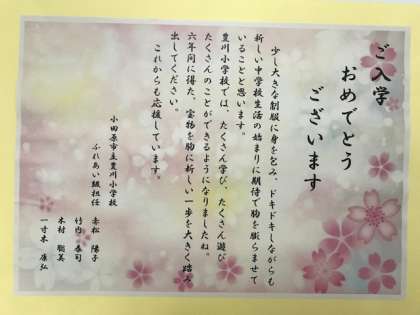 ご入学
おめでとう
ございます
少し大きな制服に身を包み、ドキドキしながらも
新しい中学校生活の始まりに期待で胸を膨らませて
いることと思います。
豊川小学校では、たくさん学び、たくさん遊び
たくさんのことができるようになりましたね。
六年間に得た、宝物を胸に新しい一歩を大きく踏み
出してください。
これからも応援しています。
小田原市立豊川小学校
ふれあい級担任 赤松 陽子
竹内 泰司
木村 聡美
一寸木 康弘